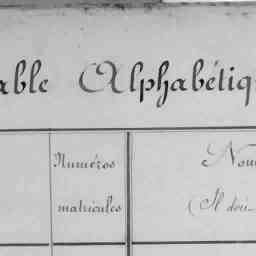 able Alphabétiq
Numéros
matricules
Nom
(Il doi